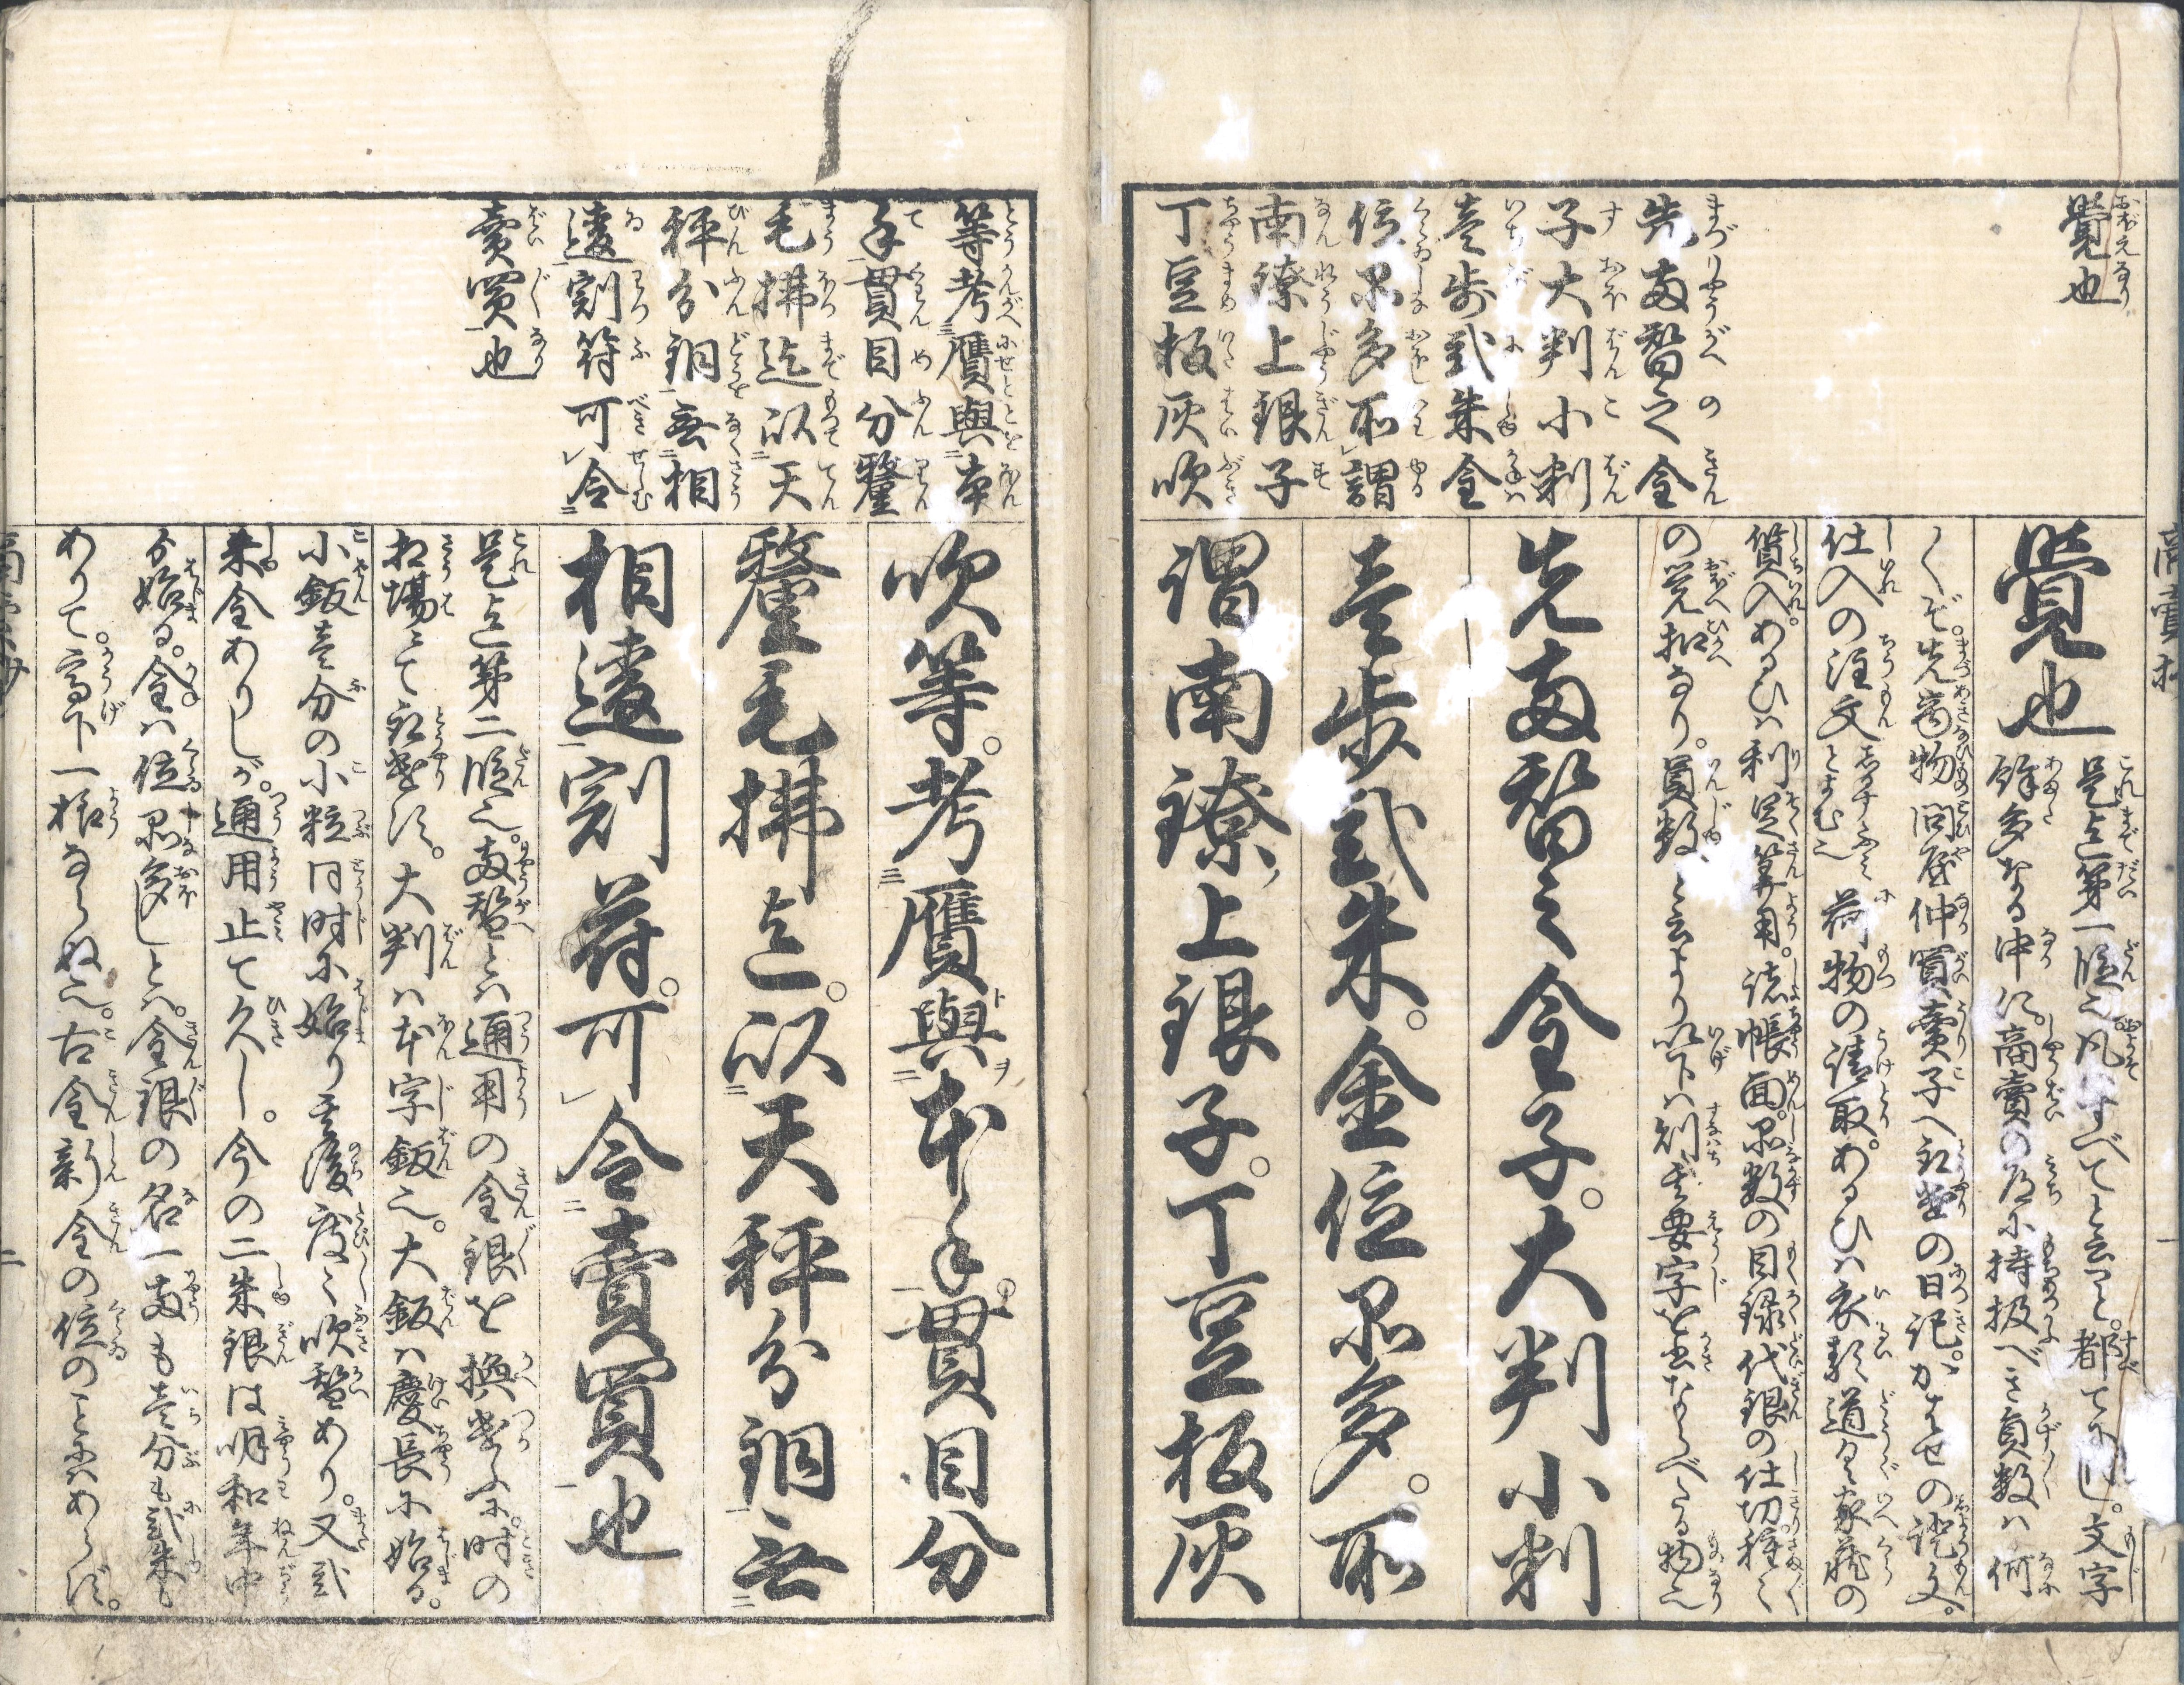 覺也
先両替之金
子大判小判
壱歩弐朱金
位品多所謂
南鐐上銀子
丁豆板灰吹
覺也
是迄第一段也凡すべてと云こと。都てに同し。文字
餘多なる中に。商賣の道に持扱べき員数ハ何
〱ぞ。先商物問屋仲買賣子へ取遣の日記。かはせの證文。
仕入の注文とよむ也荷物の請取。あるひハ衣類道具家蔵の
質入。あるひハ利足算用。諸帳面。品数の目録代銀の仕切種々
の覚扣なり。員数と云より以下ハ則其要字を書ならべたる物也
先両替之金子。大判小判
壱歩弐朱。金位品多。所
謂南鐐上銀子。丁豆板灰
等考贋與本
手貫目分釐
毛拂迄以天
秤分銅無相
違割符可令
賣買也
吹等。考贋與本手。貫目分
釐毛拂迄。以天秤分銅無
相違割符。可令賣買也
是迄第二段也。両替とハ通用の金銀を換遣ふに。時の
相場にて取遣す。大判ハ本字鈑也。大鈑ハ慶長に始る。
小鈑壱分の小粒同時に始り其後度々吹替あり。又弐
朱金ありしが。通用止て久し。今の二朱銀は明和年中
ゟ始る。金ハ位品多しとハ。金銀の名一両も壱分も弐朱も
ありて。高下一様ならぬ也。古金新金の位のことにハあらず。
商賣
一
二